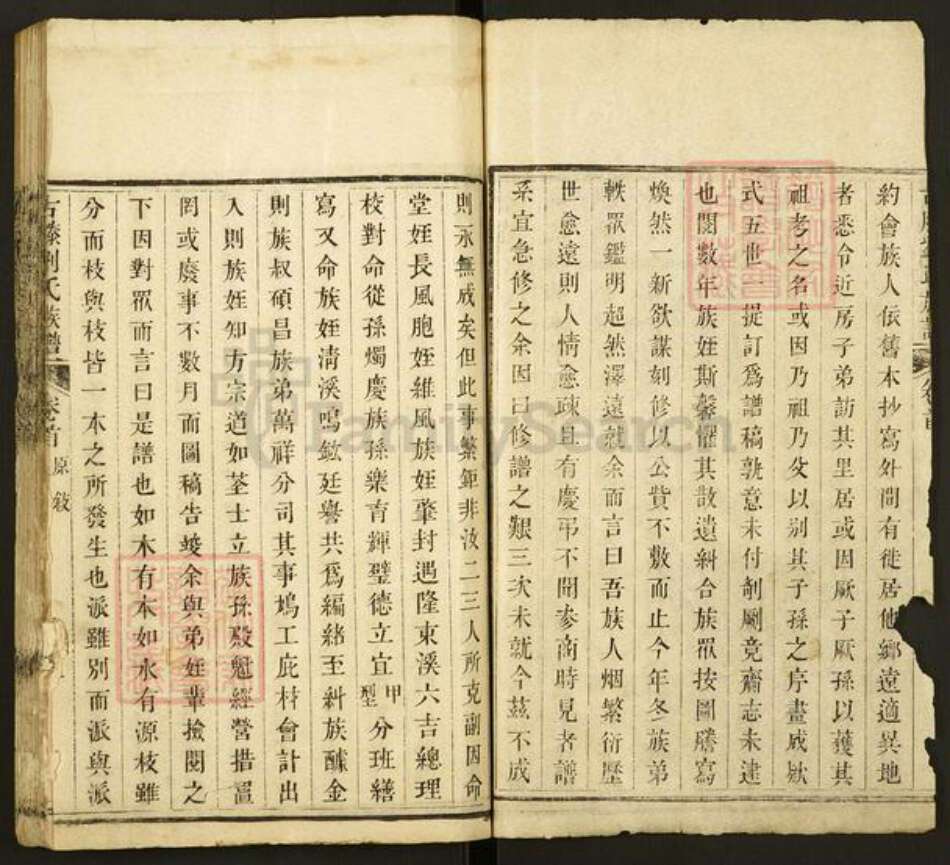 約會族人依舊本抄寫外間有徙居他鄉遠適異地
者悉令近房子弟訪其里居或因厥子厥孫以獲其
祖考之名或因乃祖乃父以別其子孫之序畫成歘
式五世一提訂爲譜稿孰意未付剞劂竟齎志未逮
也閱數年族姪斯馨懼其散遺糾合族眾按圖謄寫
煥然一新欲謀刻修以公貲不敷而止今年冬族弟
軼眾鑑明超然澤遠就余而言曰吾族人烟繁衍歷
世愈遠則人情愈疎且有慶弔不聞參商時見者譜
系宜急修之余因曰修譜之艱三次未就今茲不成
則永無成矣但此事繁鉅非汝二三人所克副因命
堂姪長風胞姪維風族姪肇封遇隆東溪六吉總理
校對命從孫燭慶族孫樂育輝璧德立宜甲型分班繕
寫又命族姪清溪鳴鉉廷譽共爲編緒至糾族醵金
則族叔碩昌族弟萬祥分司其事鳩工庇材會計出
入則族姪知方宗道如荃士立族孫殿魁經營措置
罔或廢事不數月而圖稿告竣余與弟姪輩撿閱之
下因對眾而言曰是譜也如木有本如水有源枝雖
分而枝與枝皆一本之所發生也派雖別而派與派
古滕劉氏族譜 卷首 原敘
FamilySearch